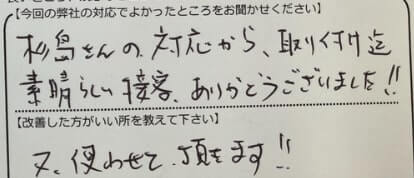 【今回の弊社の対応でよかったところをお聞かせください】
杉島さんの対応から、取り付け迄
素晴らしい接客、ありがとうございました!!
【改善した方がいい所を教えて下さい】
又、使わせて頂きます!!